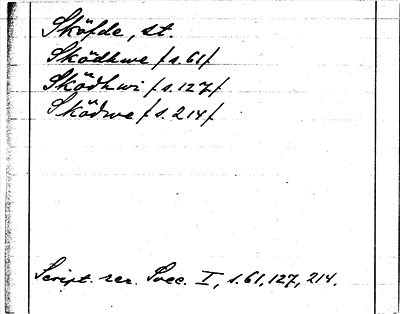 Sköfde, st.
Sködhwe /s.61/
Sködhwi /s.127/
Sködwe /s.214/
Script. rer. Svec. I, s.61, 127, 214.